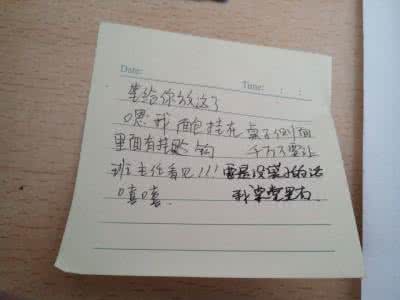 Date: Time: : :
先给你放这了
嗯 我面包挂在桌子侧面
里面有挂钩 千万不要让
班主任看见!!! 要是没袋子的话
嘻嘻. 我桌堂里有